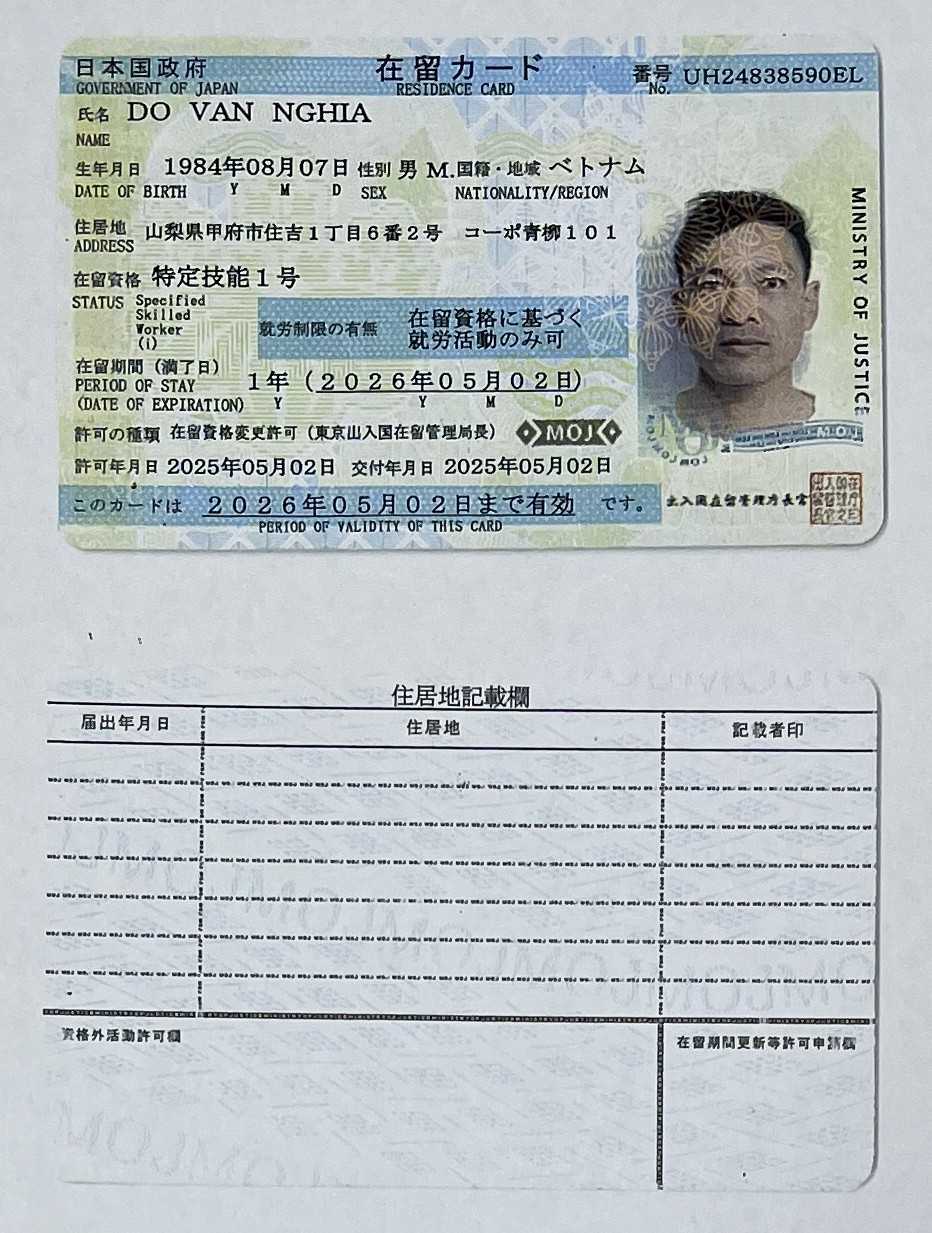 日本国政府 在留カード 番号 UH24838590EL
GOVERNMENT OF JAPAN RESIDENCE CARD No.
氏名 DO VAN NGHIA
NAME
生年月日 1984年08月07日 性別 男 M. 国籍・地域 ベトナム
DATE OF BIRTH Y M D SEX NATIONALITY/REGION
住居地 山梨県甲府市住吉1丁目6番2号 コーポ青柳101
ADDRESS
在留資格 特定技能1号
STATUS Specified
Skilled
Worker
(i)
就労制限の有無 在留資格に基づく
就労活動のみ可
在留期間(満了日)
PERIOD OF STAY 1年(2026年05月02日)
(DATE OF EXPIRATION) Y Y M D
許可の種類 在留資格変更許可(東京出入国在留管理局長) MOJ
許可年月日 2025年05月02日 交付年月日 2025年05月02日
このカードは 2026年05月02日まで有効 です。
PERIOD OF VALIDITY OF THIS CARD
MINISTRY OF JUSTICE
MOJ
出入国在留管理庁長官
住居地記載欄
届出年月日 住居地 記載者印
資格外活動許可欄 在留期間更新等許可申請欄